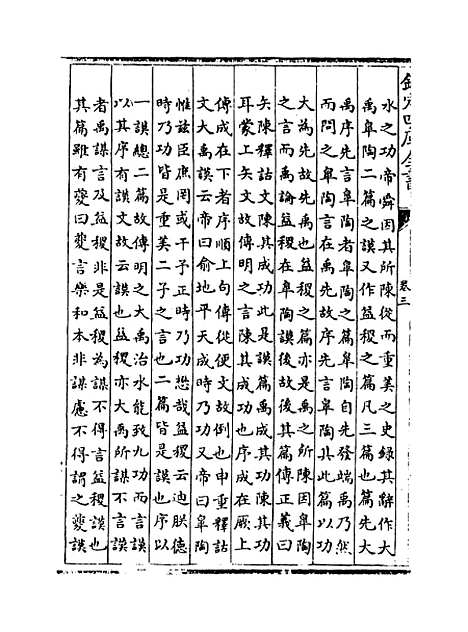 欽定四庫全書
卷三
水之功帝舜因其所陳從而重美之史録其辭作大
禹臯陶二篇之謨又作益稷之篇凡三篇也篇先大
禹序先言臯陶者臯陶之篇臯陶自先發端禹乃然
而問之臯陶言在禹先故序先言臯陶其此篇以功
大為先故先禹也益稷之篇亦是禹之所陳因臯陶
之言而禹論益稷在臯陶謨後故後其篇傳正義曰
矢陳釋詁文陳其成功此是謨篇禹成其功陳其功
耳蒙上矢文故傳明之言陳其成功也序成在厥上
傳成在下者序順上句傳從便文故倒也申重釋詁
文大禹謨云帝曰俞地平天成時乃功又帝曰臯陶
惟兹臣庶罔或干予正時乃功懋哉益稷云迪朕德
時乃功皆是重美二子之言也二篇皆是謨也序以
一謨總二篇故傳明之大禹治水能致九功而言謨
以其序有謨文故云謨也益稷亦大禹所謀不言謨
者禹謀言及益稷非是益稷為謀不得言益稷謨也
其篇雖有夔曰夔言樂和本非謀慮不得謂之夔謨